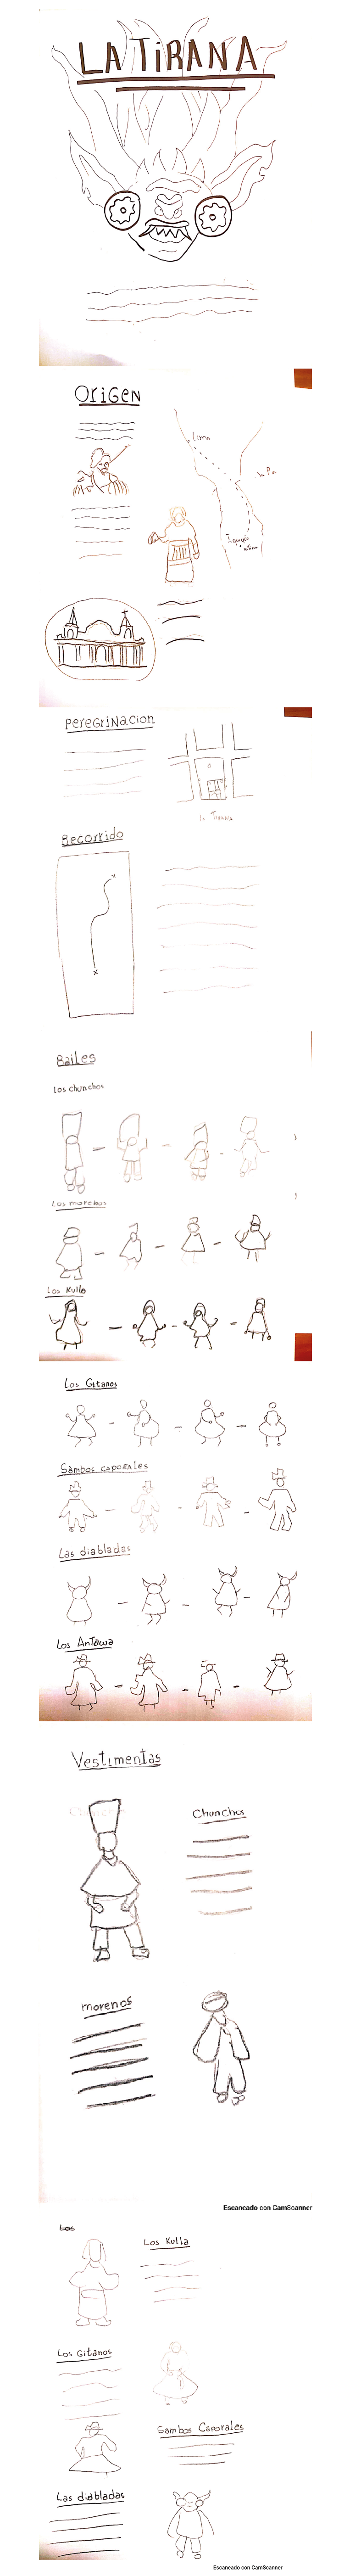 LA TIRANA
ORiGEN
Lima
La Paz
Iquique
PeregriNacion
la Tirana
Recorrido
Bailes
Los chunchos
Los morenos
Los Kulla
Los Gitanos
Sambos caporales
Las diabladas
Los Antawa
Vestimentas
Chunchos
morenos
Escaneado con CamScanner
Los
Los Kulla
Los Gitanos
Sambos Caporales
Las diabladas
Escaneado con CamScanner